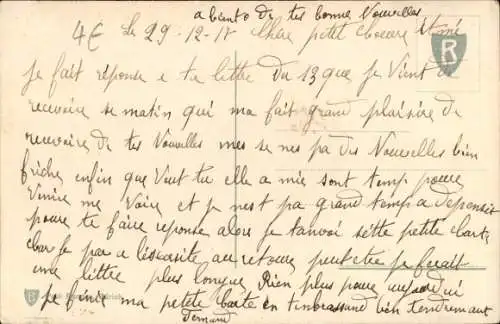 a biento de tes bonne Nouvelles
4€ Le 29-12-18 Chère petit soeur et mé
R
je fait réponse e ta lettre du 13 que je Vient de
recevoire se matin qui ma fait grand plaisire de
recevoire de tes Nouvelles mes se nes pa des Nouvelles bien
friches enfin que Veut tu elle a mie sont temp poure
Venire me Voire et je nest pa grand temp a dépensée
poure te faire reponse alors je tanvoi sette petite carte
car le par a au retoure peut etre je ferait
une lettre plus longue Rien plus poure aujourdui
je finie ma petite carte en tenbrassand bien tendremant
R